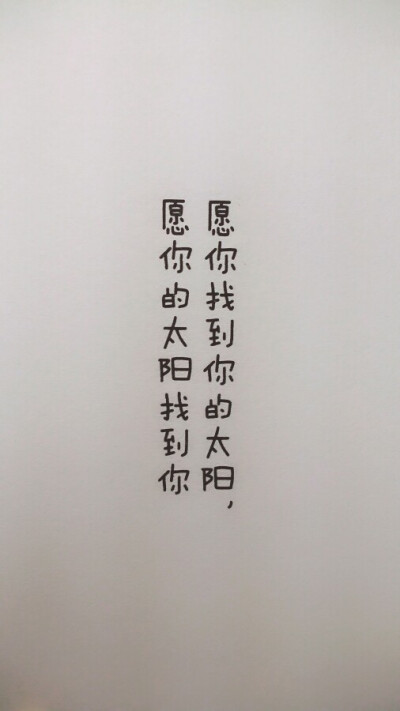 愿你找到你的太阳，
愿你的太阳找到你